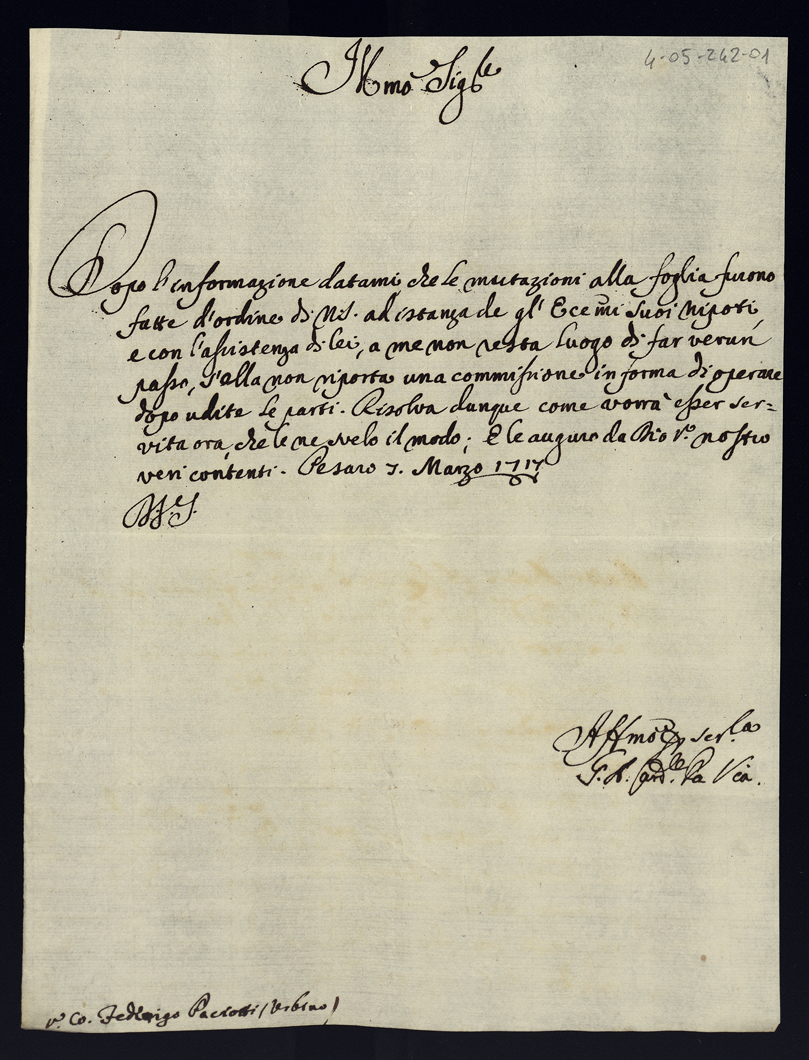 4-05-242-01
Illmo Sig.re
Dopo l'informazione datami, che le mutazioni alla foglia furono
fatte d'ordine di N.S. ad istanza de gl' Ecc.mi Suoi Nipoti,
e con l'assistenza di lei, a me non resta luogo di far verun
passo, s'alla non riporta una commissione in forma di operare
dopo udite le parti. Risolva dunque come vorrà esser ser=
vita ora, che le ne svelo il modo; E le auguro da Dio N.ro nostro
veri contenti. Pesaro 7. Marzo 1717
Aff.mo per ser.la
Card.le
S.r Co. Federigo Paciotti (Urbino)